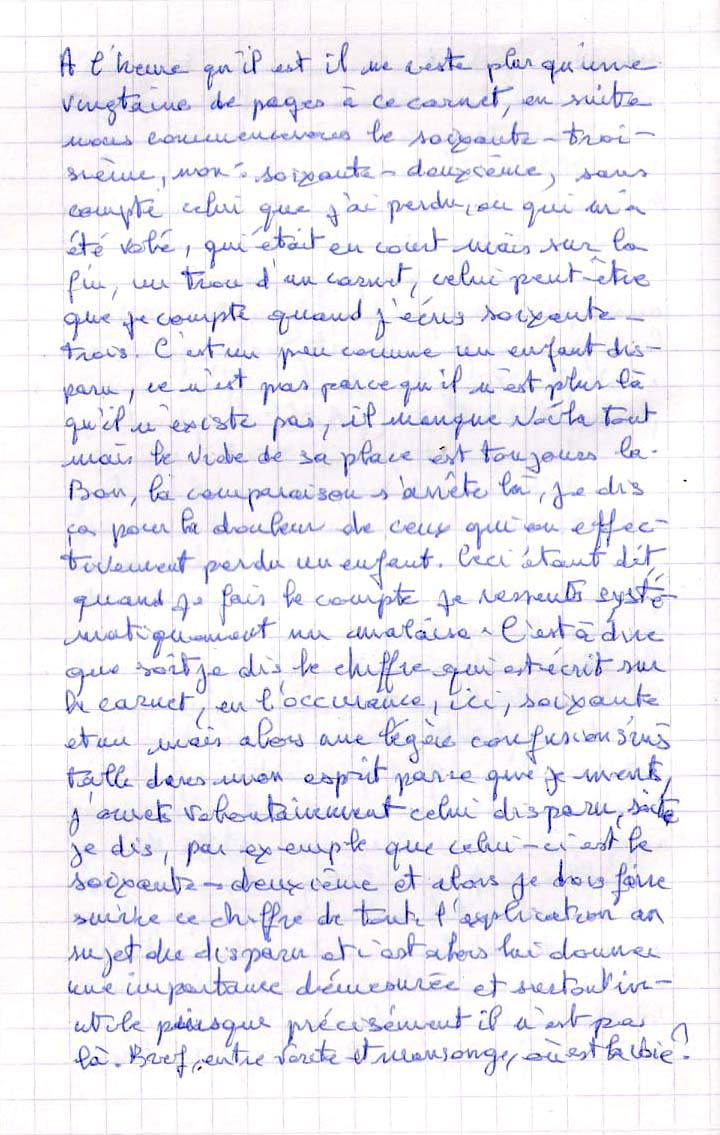 A l'heure qu'il est il ne reste plus qu'une
vingtaine de pages à ce carnet, ensuite
nous commencerons le soixante-troi-
sième, non : soixante-deuxième, sans
compte celui que j'ai perdu, ou qui m'a
été volé, qui était en court mais sur la
fin, un trou d'un carnet, celui peut-être
que je compte quand j'écris soixante-
trois. C'est un peu comme un enfant dis-
paru, ce n'est pas parce qu'il n'est plus là
qu'il n'existe pas, il manque voilà tout
mais le vide de sa place est toujours la.
Bon, la comparaison s'arrête là, je dis
ça pour la douleur de ceux qui on effec-
tivement perdu un enfant. Ceci étant dit,
quand je fais le compte je ressents systé-
matiquement un malaise. C'est à dire
que soit je dis le chiffre qui est écrit sur
le carnet, en l'occurance, ici, soixante
et un mais alors une légère confusion s'ins
talle dans mon esprit parce que je ments,
j'omets volontairement celui disparu, soit
je dis, par exemple que celui-ci est le
soixante-deuxième et alors je dois faire
suivre ce chiffre de toute l'explication au
sujet du disparu et c'est alors lui donner
une importance démesurée et surtout in-
utile puisque précisément il n'est pas
là. Bref, entre vérité et mensonge, où est la vie ?